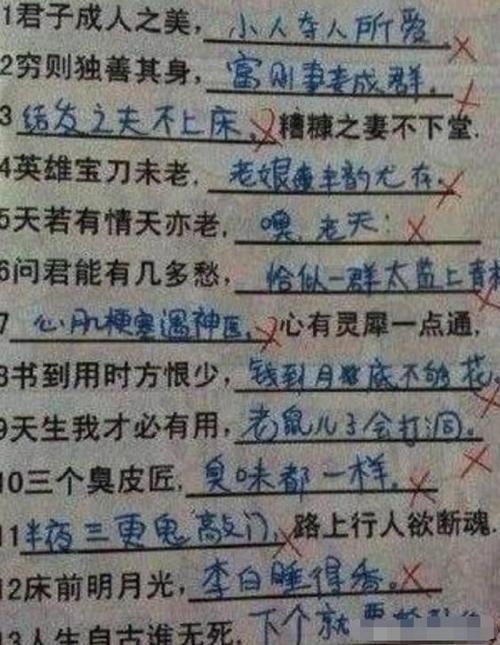 1君子成人之美，小人夺人所爱
2穷则独善其身，富则妻妾成群。
3结发之夫不上床，糟糠之妻不下堂.
4英雄宝刀未老，老娘丰韵尤存。
5天若有情天亦老，噢，老天！
6问君能有几多愁，恰似一群太监上青
7心肌梗塞遇神医，心有灵犀一点通，
8书到用时方恨少，钱到月底不够花。
9天生我才必有用，老鼠儿子会打洞。
10三个臭皮匠，臭味都一样。
11半夜三更鬼敲门，路上行人欲断魂.
12床前明月光，李白睡得香。
13人生自古谁无死，下个就